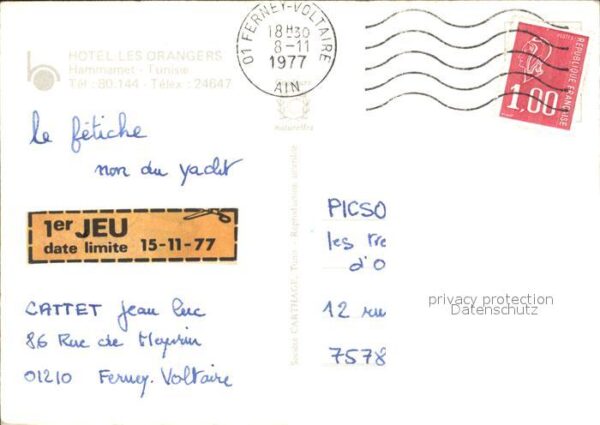 HOTEL LES ORANGERS
Hammamet - Tunisie
Tél : 80.144 - Télex : 24647
01 FERNEY-VOLTAIRE
18H30
8-11
1977
AIN
REPUBLIQUE FRANÇAISE
1,00
le fétiche
non du yacht
1er JEU
date limite 15-11-77
CATTET Jean luc
86 Rue de Meyrin
01210 Ferney.Voltaire
Société CARTHAGE, Tunis - Reproduction interdite
PICSO
les tre
d'O
12 ru
7578
privacy protection
Datenschutz